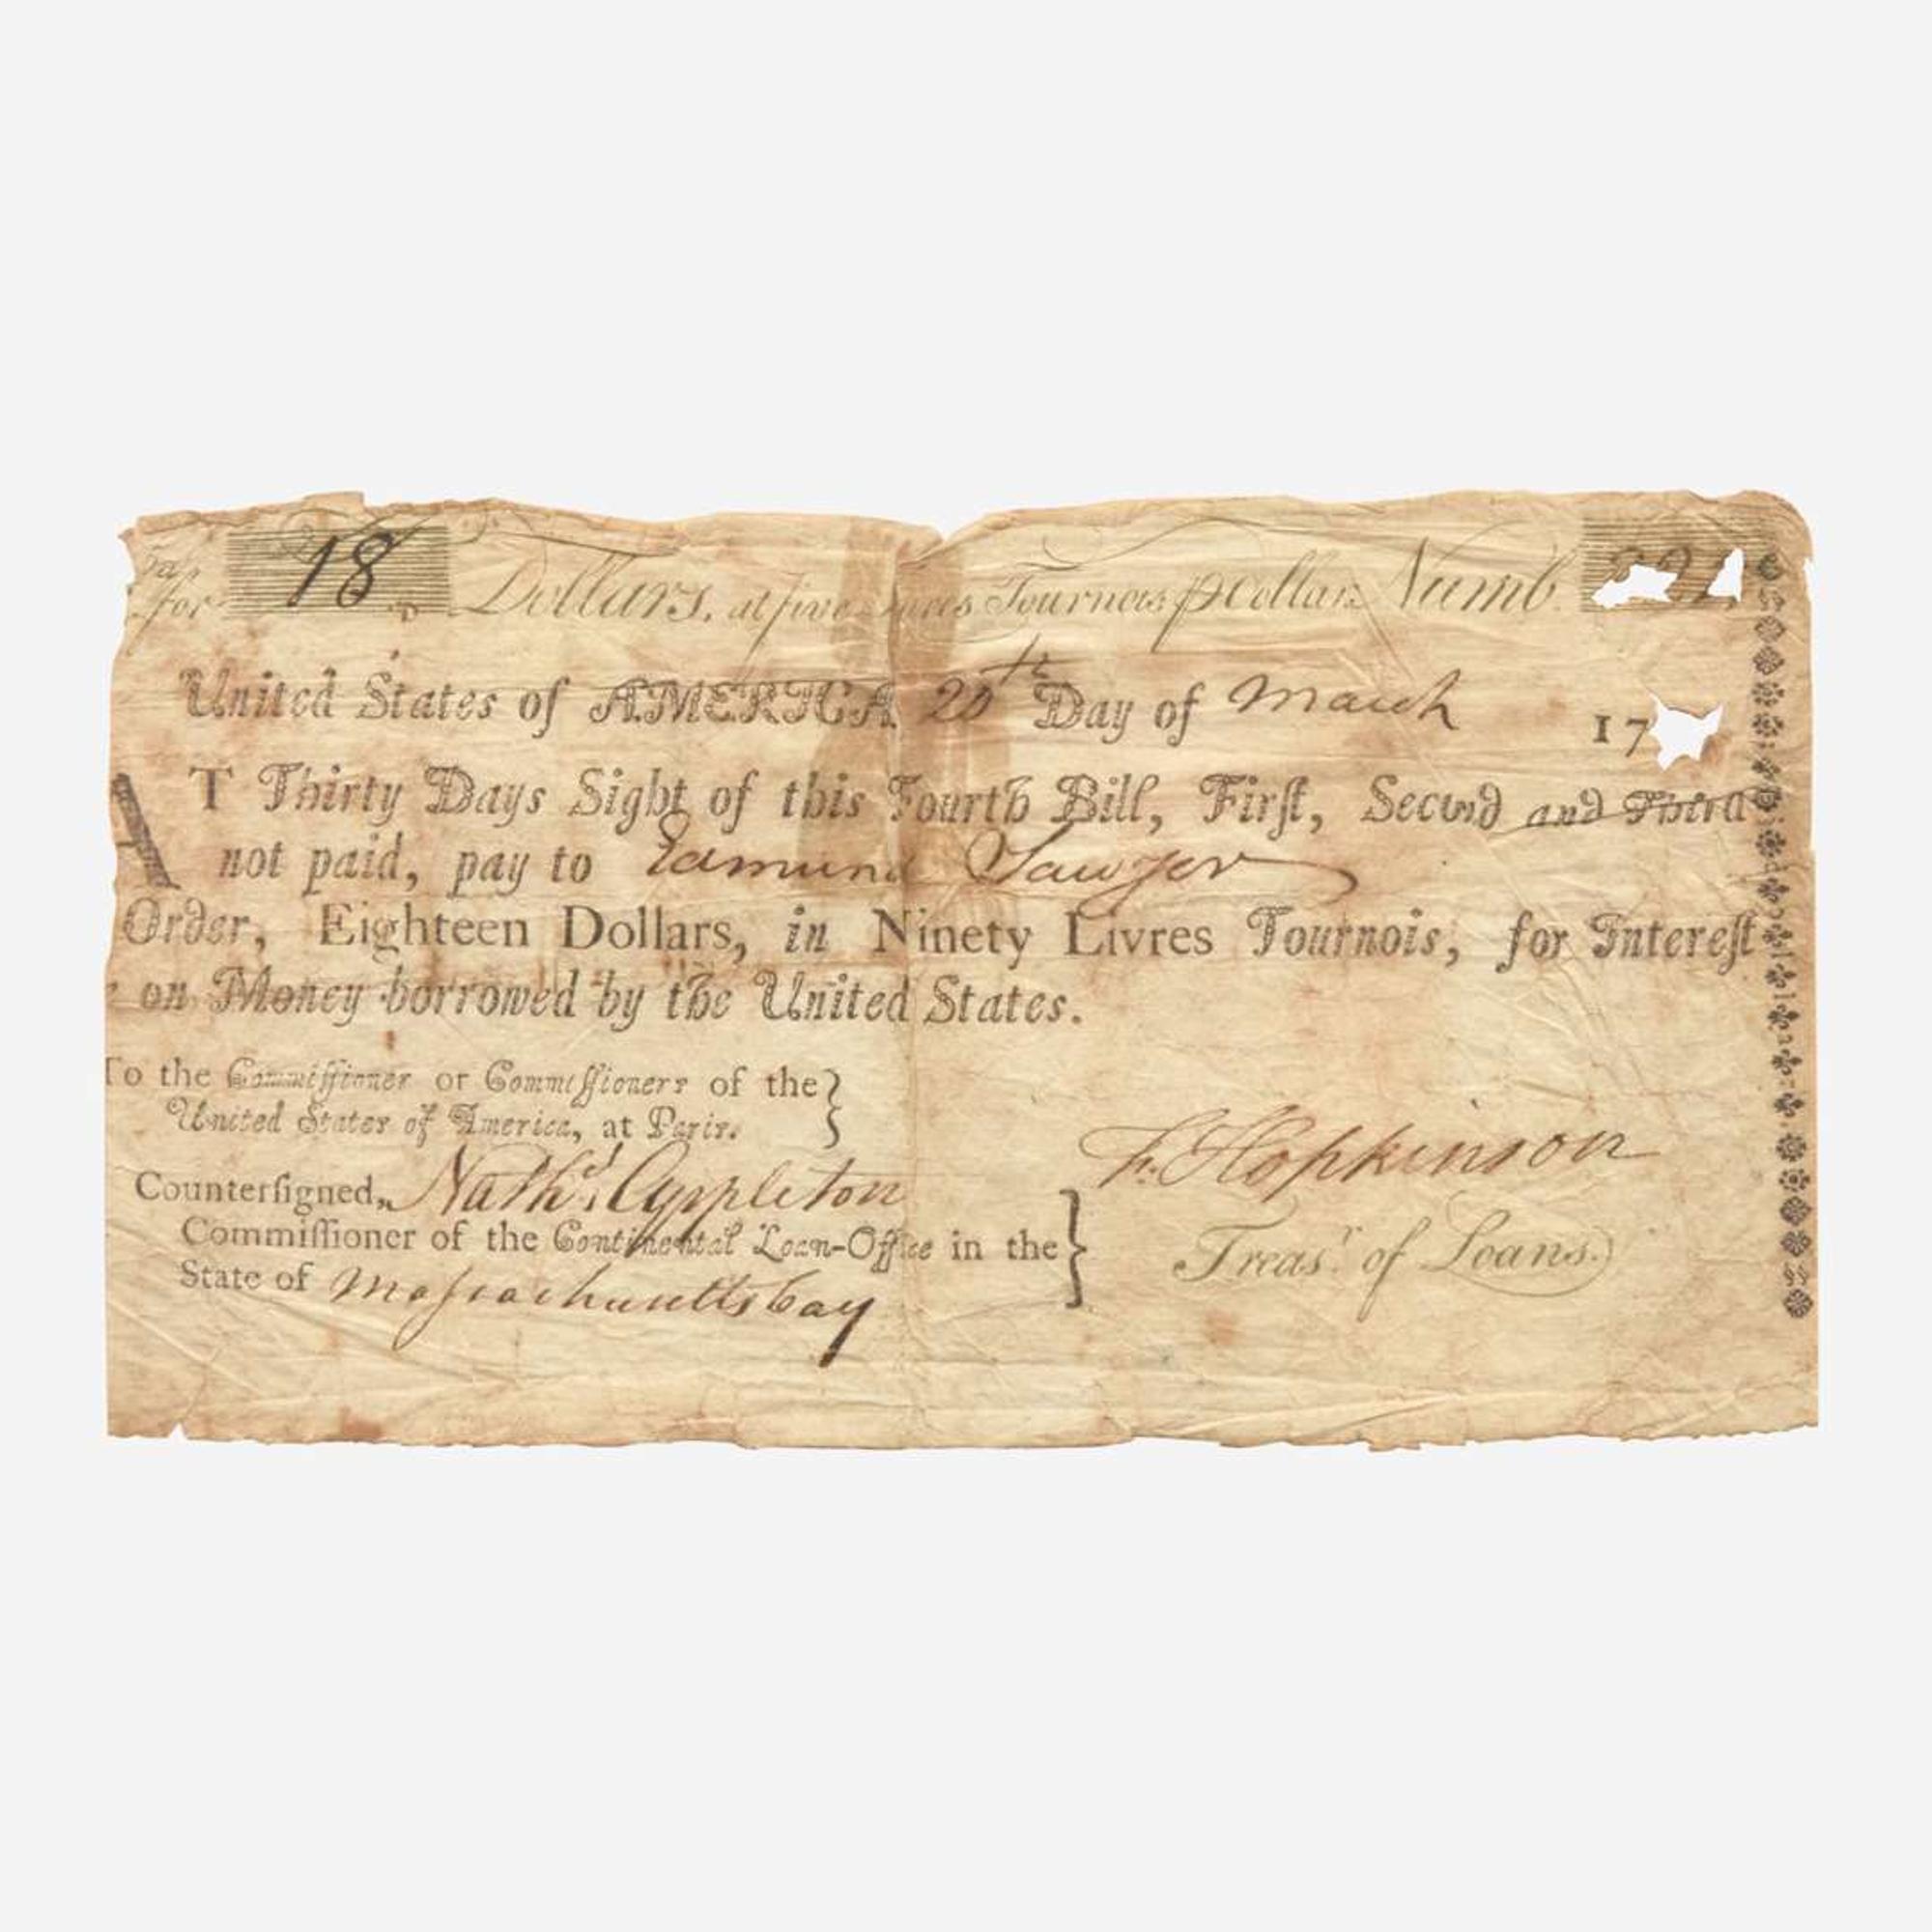 for 18 Dollars, at five Livres Tournois p Dollar. Numb.
United States of AMERICA 20th Day of March 17
AT Thirty Days Sight of this Fourth Bill, Firſt, Second and Third
not paid, pay to Edmund Sawyer
Order, Eighteen Dollars, in Ninety Livres Tournois, for Intereſt
on Money borrowed by the United States.
To the Commiſſioner or Commiſſioners of the
United States of America, at Paris.
F. Hopkinson
Counterſigned, Nathl. Appleton
Treasr. of Loans.
Commiſſioner of the Continental Loan-Office in the
State of Maſsachuettsbay